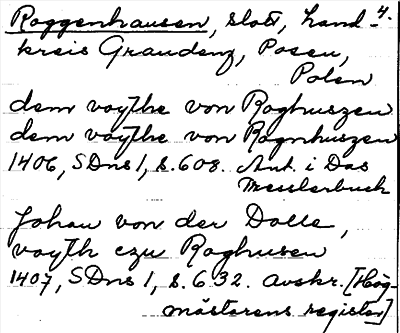 Roggenhausen, slott, Land- 4.
kreis Graudenz, Posen,
Polen
dem voythe von Roghuszen
dem voythe von Rognhuszen
1406, SDns 1, s. 608. Ant. i Das
Meisslerbuch
Johan von der Dolle,
voyth czu Roghusen
1407, SDns 1, s. 632. Avskr. [Hög-
mästarens register]